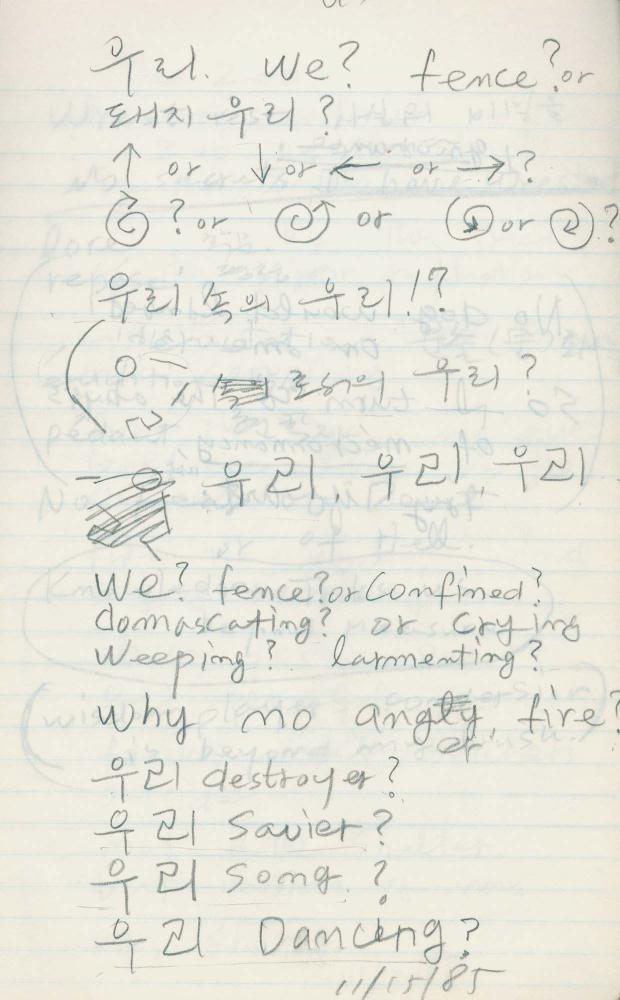 우리. We? fence? or
돼지 우리?
↑ or ↓ or ← or →?
? or or or ?
우리 속의 우리!?
우리?
우리, 우리, 우리
We? fence? or Confined?
domascating? or Crying
Weeping? larmenting?
Why no fire?
er
우리 destroyer?
우리 Savier?
우리 Song ?
우리 Dancing?
11/15/85